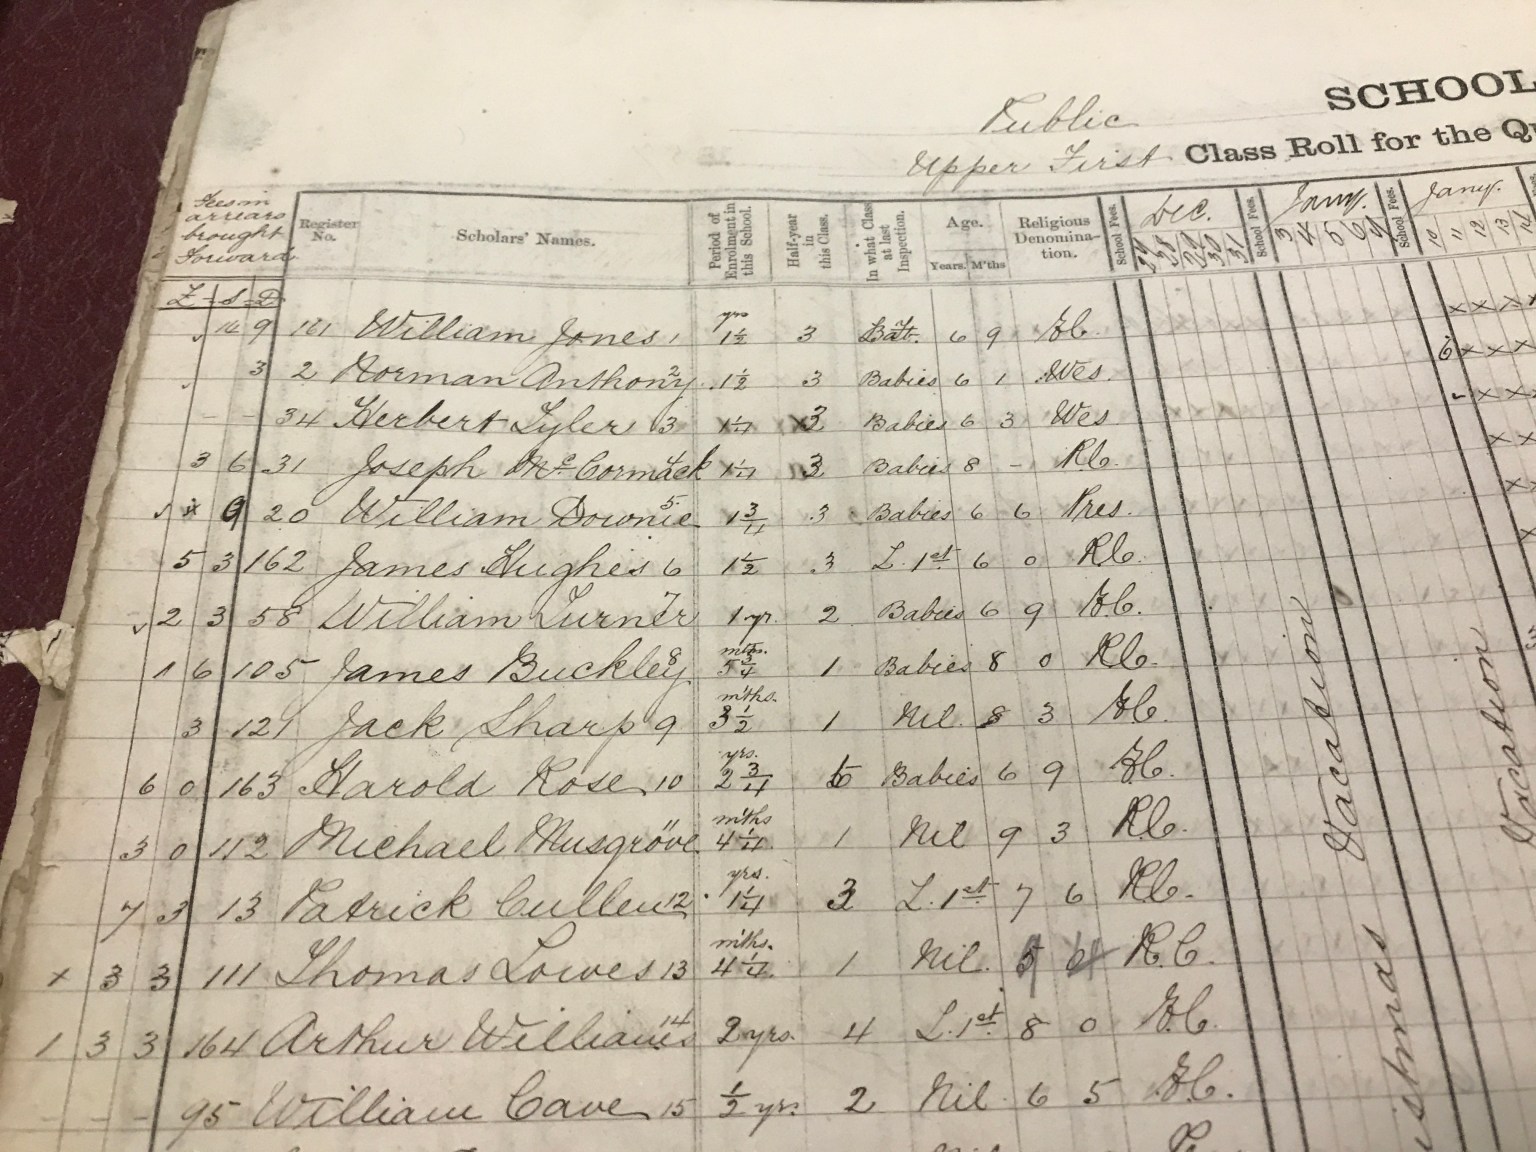 SCHOOL
Public
Upper First Class Roll for the Qu
Fees in arrears brought forward
Register No.
Scholars' Names.
Period of Enrolment in this School.
Half-year in this Class.
In what Class at last Inspection.
Age.
Years. M'ths
Religious Denomina-tion.
School Fees.
Dec.
29 30 31
School Fees.
Jany.
3 4 5 6 7
School Fees.
Jany.
10 11 12 13 14
£ - S - D
9 161 William Jones 1 yrs 1½ 3 6 9
3 2 Norman Anthony 2 1½ 3 Babies 6 1 Wes.
- - 34 Herbert Tyler 3 1¼ 3 Babies 6 3 Wes
3 6 31 Joseph McCormack 4 1¼ 3 Babies 8 - R.C.
9 20 William Downie 5. 1¾ 3 Babies 6 6 Pres.
5 3 162 James Hughes 6 1½ 3 L. 1st 6 0 R.C.
2 3 58 William Turner 7 1 yr. 2 Babies 6 9
1 6 105 James Buckley 8 mths. 5¾ 1 Babies 8 0 R.C.
3 121 Jack Sharp 9 m'ths. 3½ 1 Nil. 8 3
6 0 163 Harold Rose 10 yrs. 2¾ Babies 6 9
3 0 112 Michael Musgrove 11 mths 4¼ 1 Nil 9 3 R.C.
7 3 13 Patrick Cullen 12 yrs. 1¼ 3 L. 1st 7 6 R.C.
x 3 3 111 Thomas Lowes 13 m'ths. 4¼ 1 Nil. R.C.
1 3 3 164 Arthur Williams 14 2 yrs. 4 L. 1st 8 0
- - - 95 William Cave 15 ½ yr. 2 Nil 6 5
Vacation
Vacation
istmas